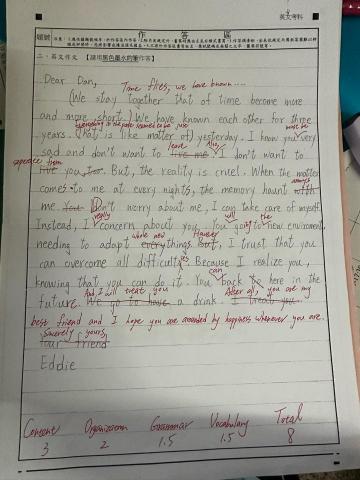 英文考科
作答區
題號
二、英文作文 【請用黑色墨水的筆作答】
Dear Dan,
Time flies, we have known....
(We stay together that of time become more
and more short.) We have known each other for three
everything in the past seemed to be just
must be
years. (That is like matter of) yesterday. I know you very
leave
Also,
sad and don't want to live me. I don't want to
separate from
live you, too. But, the reality is cruel. When the matter
always
comes to me at every nights, the memory haunt with
me. You Don't worry about me, I can take care of myself.
really
will
the
Instead, I concern about you. You going to new enviroment,
whole new
However
needing to adapt everythings. But, I trust that you
ies
can overcome all difficulty. Because I realize you,
can
knowing that you can do it. You back to here in the
And, I will treat you
After all, you are my
future. We go to have a drink. I treat you.
best friend and I hope you are surrounded by happiness whenever you are.
Sincerely yours,
Your friend
Eddie
Content Organization Grammar Vocabulary Total
3 2 1.5 1.5 8